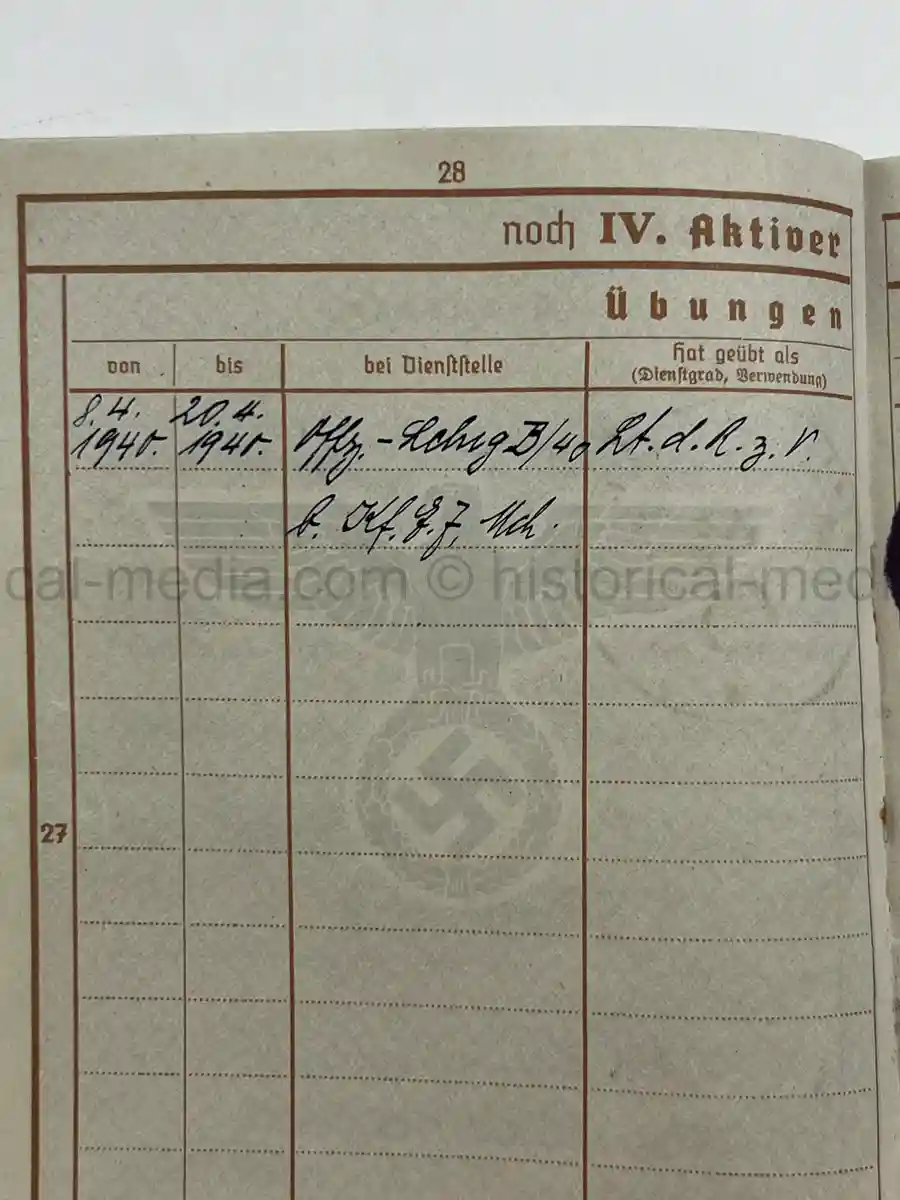 28
noch IV. Aktiver
Übungen
von bis bei Dienststelle Hat geübt als
(Dienstgrad, Verwendung)
8.4. 20.4.
1940. 1940. Offz.-Lehrg B/40 Lt. d. R. z. V.
b. Kf. E. Mch.
cal-media.com © historical-med
27